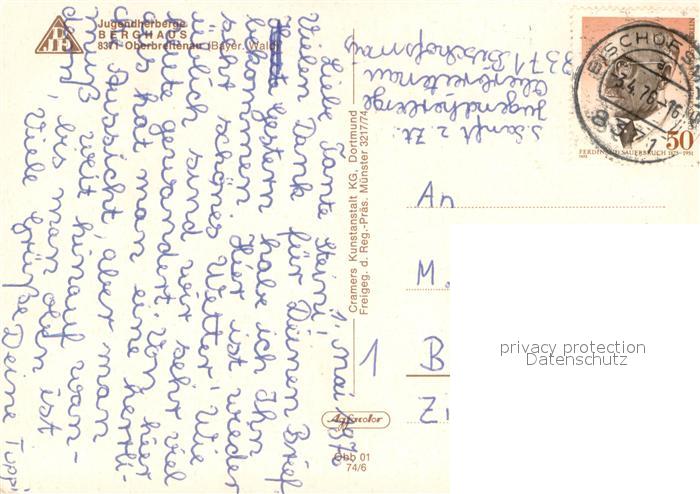 Jugendherberge
BERGHAUS
8371 Oberbreitenau (Bayer. Wald)
1. Mai 1976
Liebe Tante Heini,
Vielen Dank für Deinen Brief
Gestern habe ich Ihn
bekommen. Hier ist wieder
sehr schönes Wetter. Wie
sind wir sehr viel
heute gewandert. Von hier
aus hat man eine herrli-
che Aussicht, aber man
muß weit hinauf wan-
dern, bis man oben ist
Viele Grüße Deine
z. Zt.
Jugendherberge
Oberbreitenau
8371 Bischofsmais
Cramers Kunstanstalt KG, Dortmund
Freigeg. d. Reg.-Präs. Münster 3217/74
BISCHOFSMAIS
8371
50
FERDINAND SAUERBRUCH 1875-1951
An
M.
1 B
Agfacolor
Obb 01
74/6
privacy protection
Datenschutz